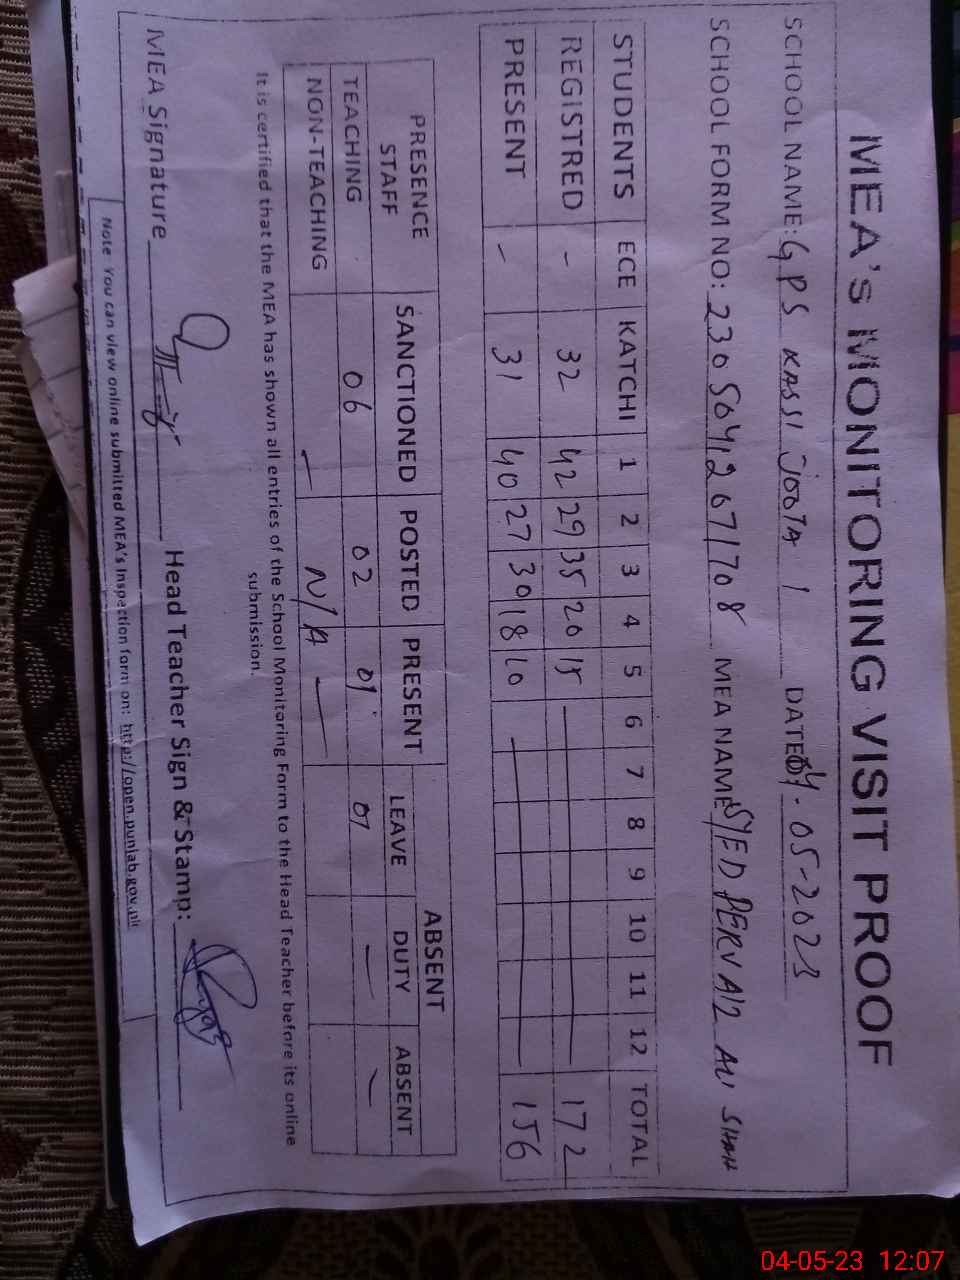 MEA's MONITORING VISIT PROOF
SCHOOL NAME: GPS KASSI JOOTA 1 DATE 04.05-2023
SCHOOL FORM NO: 23056412671708 MEA NAME SYED PERVAIZ ALI SHAH
STUDENTS ECE KATCHI 1 2 3 4 5 6 7 8 9 10 11 12 TOTAL
REGISTRED - 32 42 29 35 20 15 172
PRESENT - 31 40 27 30 18 10 156
PRESENCE STAFF SANCTIONED POSTED PRESENT ABSENT
LEAVE DUTY ABSENT
TEACHING 06 02 01 01 - -
NON-TEACHING — N/A —
It is certified that the MEA has shown all entries of the School Monitoring Form to the Head Teacher before its online
submission.
MEA Signature Head Teacher Sign & Stamp:
Note You can view online submitted MEA's Inspection form on: http://open.punjab.gov.pk
04-05-23 12:07